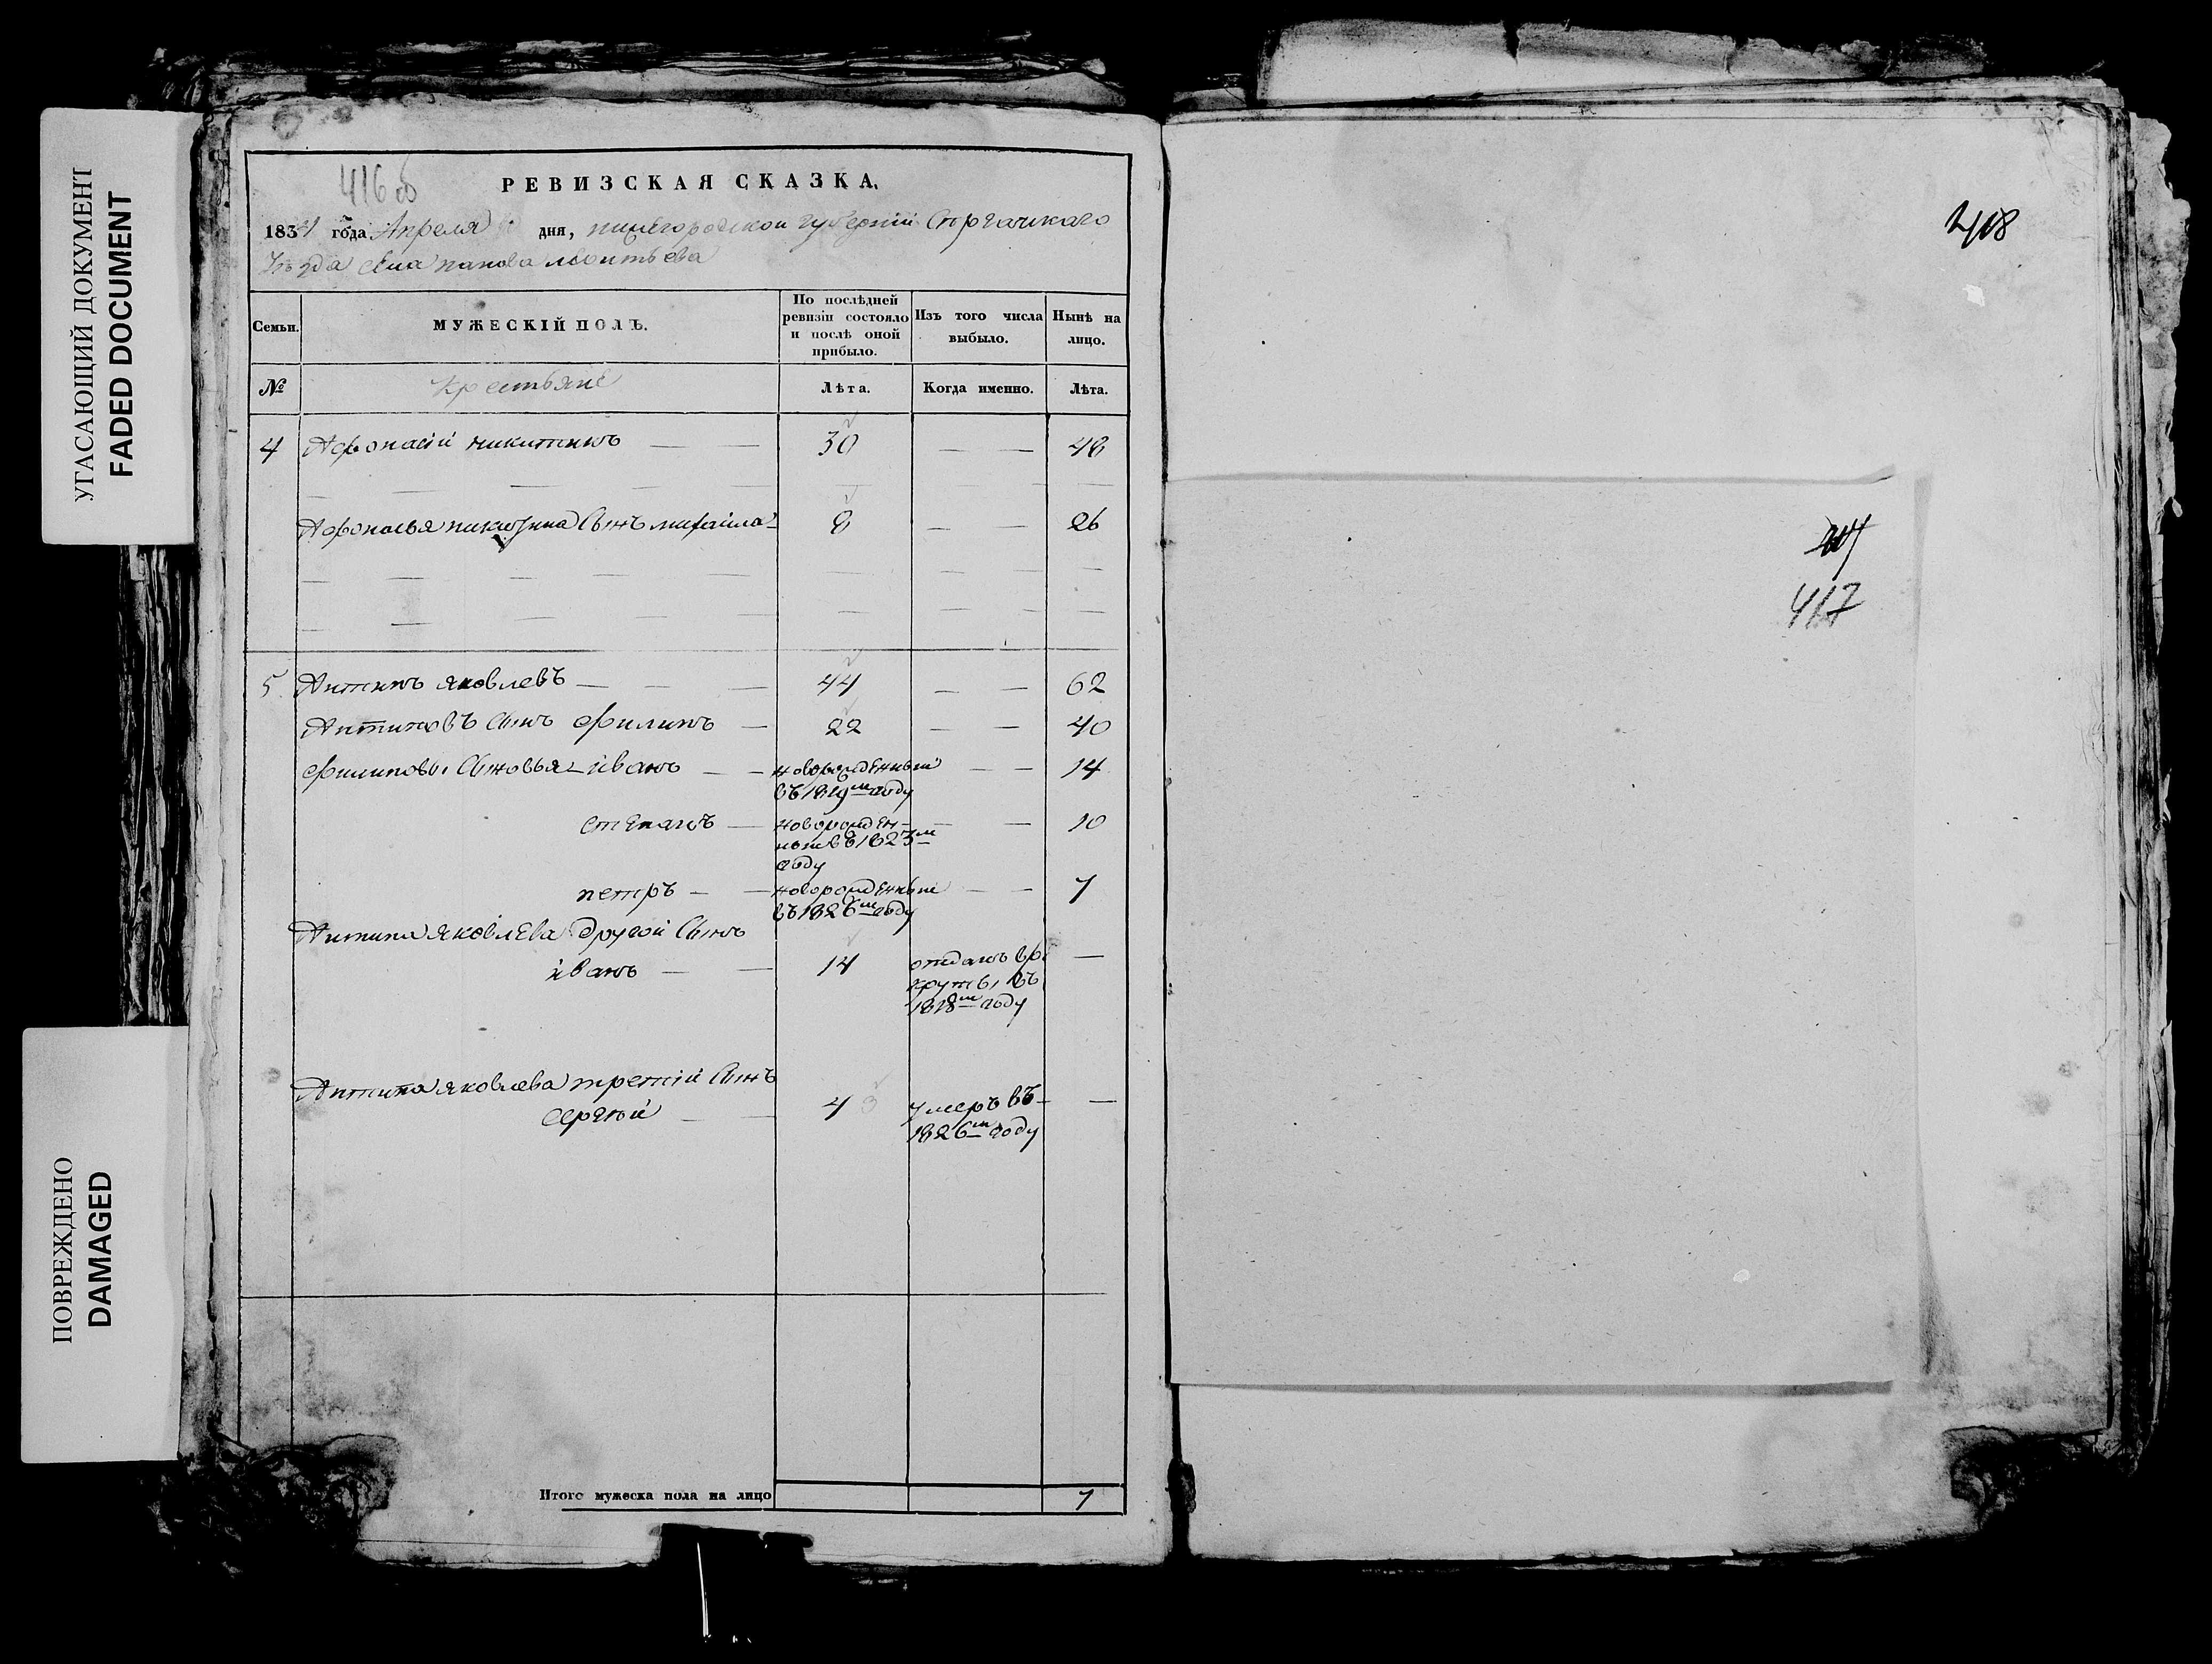 УГАСАЮЩИЙ ДОКУМЕНТ
FADED DOCUMENT
ПОВРЕЖДЕНО
DAMAGED
416 об
РЕВИЗСКАЯ СКАЗКА.
1834 года Апреля дня, нижегородской губернiи
Уѣзда Села панова
Семьи.
МУЖЕСКIЙ ПОЛЪ.
По послѣдней ревизiи состояло и послѣ оной прибыло.
Изъ того числа выбыло.
Нынѣ на лицо.
№ Крестьяне Лѣта. Когда именно. Лѣта.
4 Афонасiй никитинъ — — 30 — — 48
Афонасья никитина Сынъ михайла 8 — — 26
5 Антипъ яковлевъ — — — 44 — — 62
Антиповъ Сынъ Филипъ — 22 — — 40
Филиповы Сыновья иванъ — — новорожденный въ 1819м году — — 14
степанъ — новорожденный въ 1823м году — — 10
петръ — — новорожденный въ 1826м году — — 7
Антипа яковлева другой Сынъ
иванъ — — 14 отданъ в рекруты въ 1818м году —
Антипа яковлева третiй Сынъ
Сергѣй — — 4 умеръ въ 1826м году —
Итого мужеска пола на лицо 7
418
417